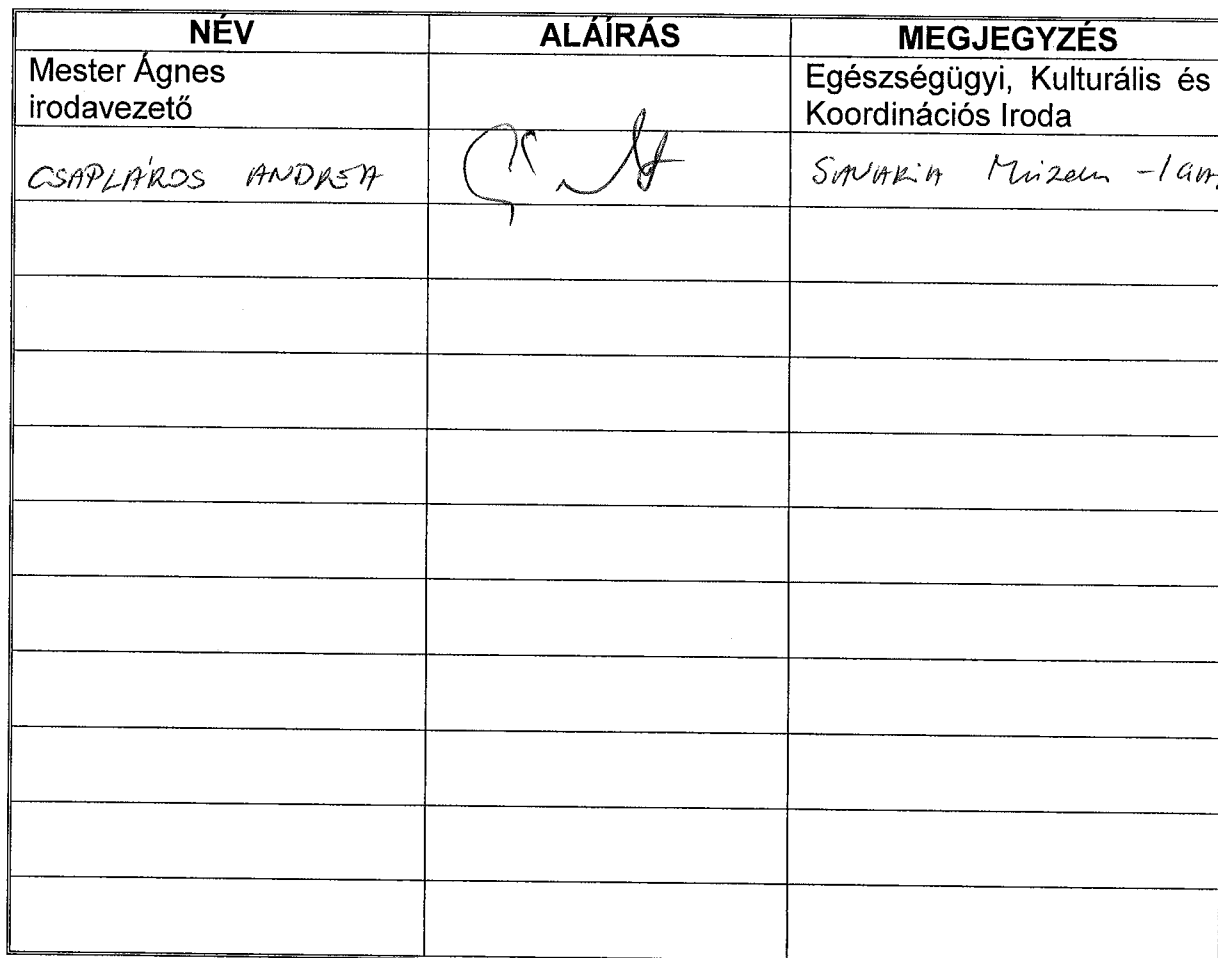 NÉV ALÁÍRÁS MEGJEGYZÉS
Mester Ágnes
irodavezető
Egészségügyi, Kulturális és
Koordinációs Iroda
CSAPLÁROS ANDREA SAVARIA Múzeum